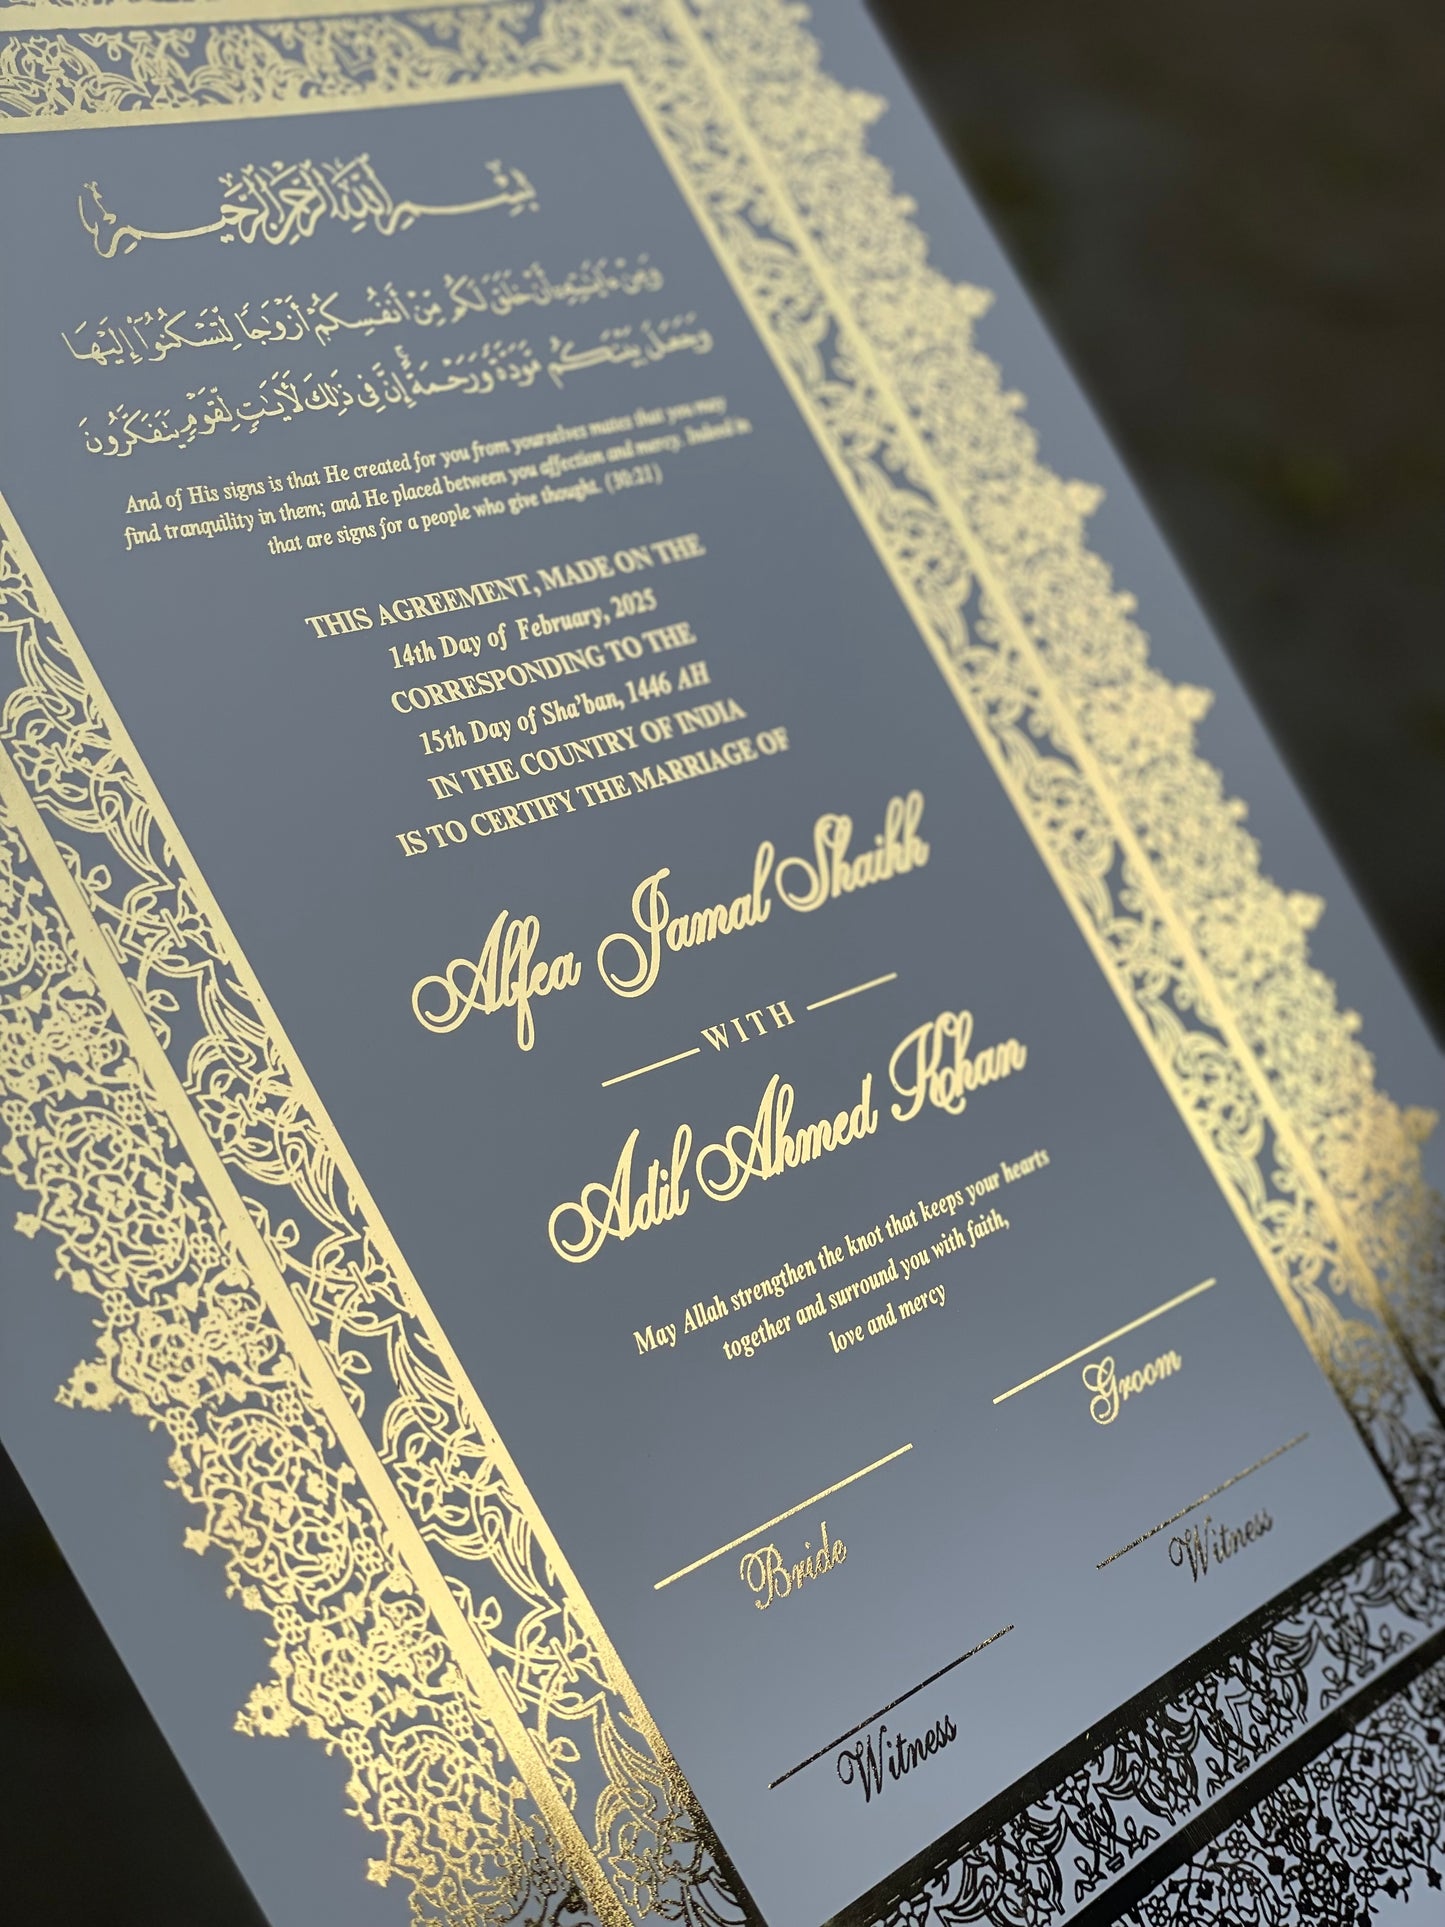 بِسْمِ اللَّهِ الرَّحْمَٰنِ الرَّحِيمِ
وَمِنْ ءَايَٰتِهِۦٓ أَنْ خَلَقَ لَكُم مِّنْ أَنفُسِكُمْ أَزْوَٰجًا لِّتَسْكُنُوٓا۟ إِلَيْهَا
وَجَعَلَ بَيْنَكُم مَّوَدَّةً وَرَحْمَةً ۚ إِنَّ فِى ذَٰلِكَ لَأَيَٰتٍ لِّقَوْمٍ يَتَفَكَّرُونَ
And of His signs is that He created for you from yourselves mates that you may
find tranquility in them; and He placed between you affection and mercy. Indeed in
that are signs for a people who give thought. (30:21)
THIS AGREEMENT, MADE ON THE
14th Day of February, 2025
CORRESPONDING TO THE
15th Day of Sha'ban, 1446 AH
IN THE COUNTRY OF INDIA
IS TO CERTIFY THE MARRIAGE OF
Alfea Jamal Shaikh
WITH
Adil Ahmed Khan
May Allah strengthen the knot that keeps your hearts
together and surround you with faith,
love and mercy
Groom
Bride
Witness
Witness